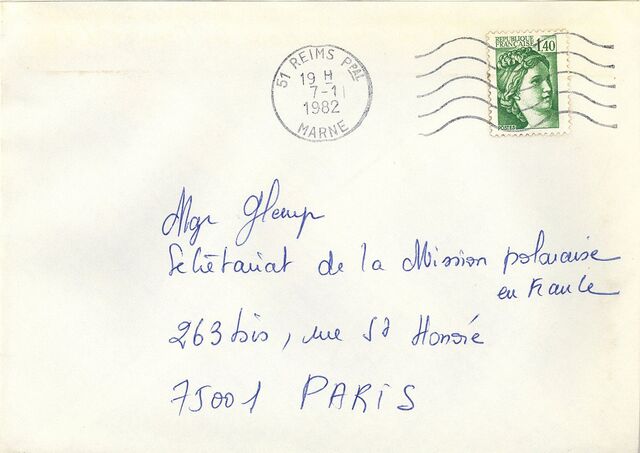 51 REIMS PPAL
19 H
7-11
1982
MARNE
REPUBLIQUE
FRANÇAISE 1,40
POSTES
Mgr Glemp
Secrétariat de la Mission polonaise
en France
263 bis, rue St Honoré
75001 PARIS